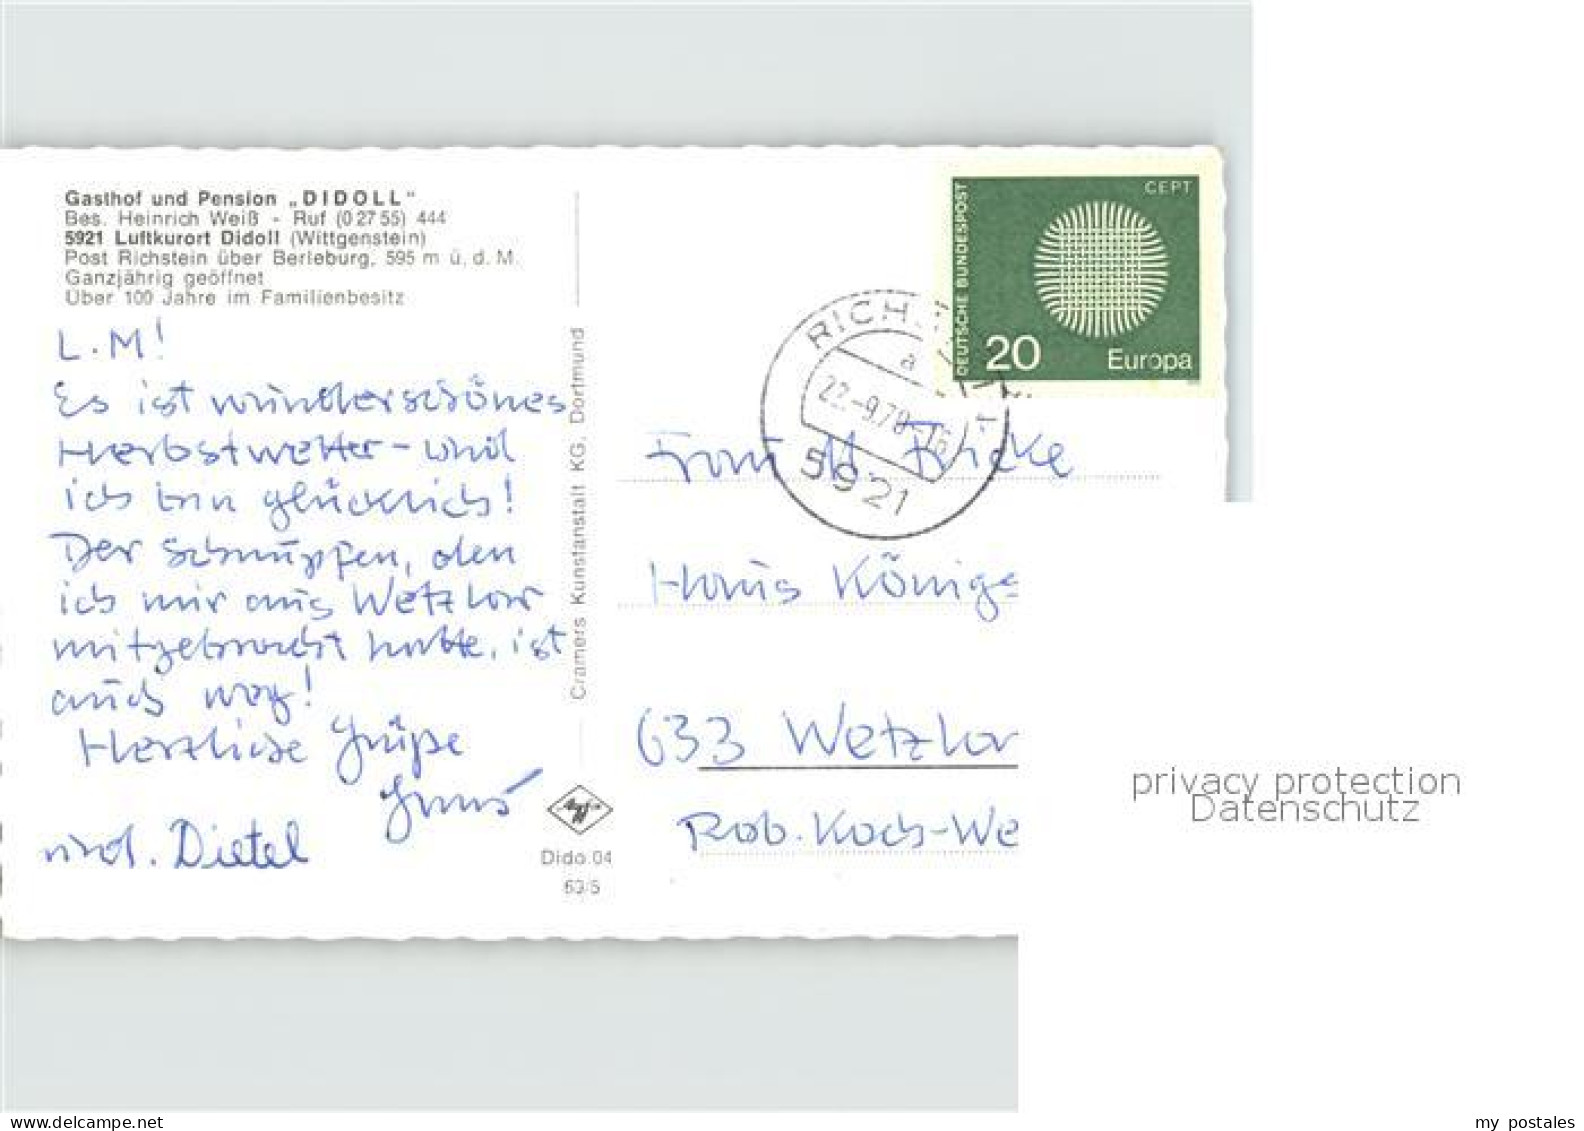 Gasthof und Pension „DIDOLL"
Bes. Heinrich Weiß - Ruf (0 27 55) 444
5921 Luftkurort Didoll (Wittgenstein)
Post Richstein über Berleburg, 595 m ü. d. M.
Ganzjährig geöffnet
Über 100 Jahre im Familienbesitz
L. M!
Es ist wunderschönes
Herbstwetter - und
ich bin glücklich!
Der Schnupfen, den
ich mir aus Wetzlar
mitgebracht hatte, ist
auch weg!
Herzliche Grüße
und. Dietel
Cramers Kunstanstalt KG, Dortmund
Dido 04
63/5
DEUTSCHE BUNDESPOST
CEPT
20
Europa
RICH
a
22.-9.70-16
5921
Frau M. Fricke
Haus Königs
633 Wetzlar
Rob. Koch-We
privacy protection
Datenschutz
www.delcampe.net
my postales